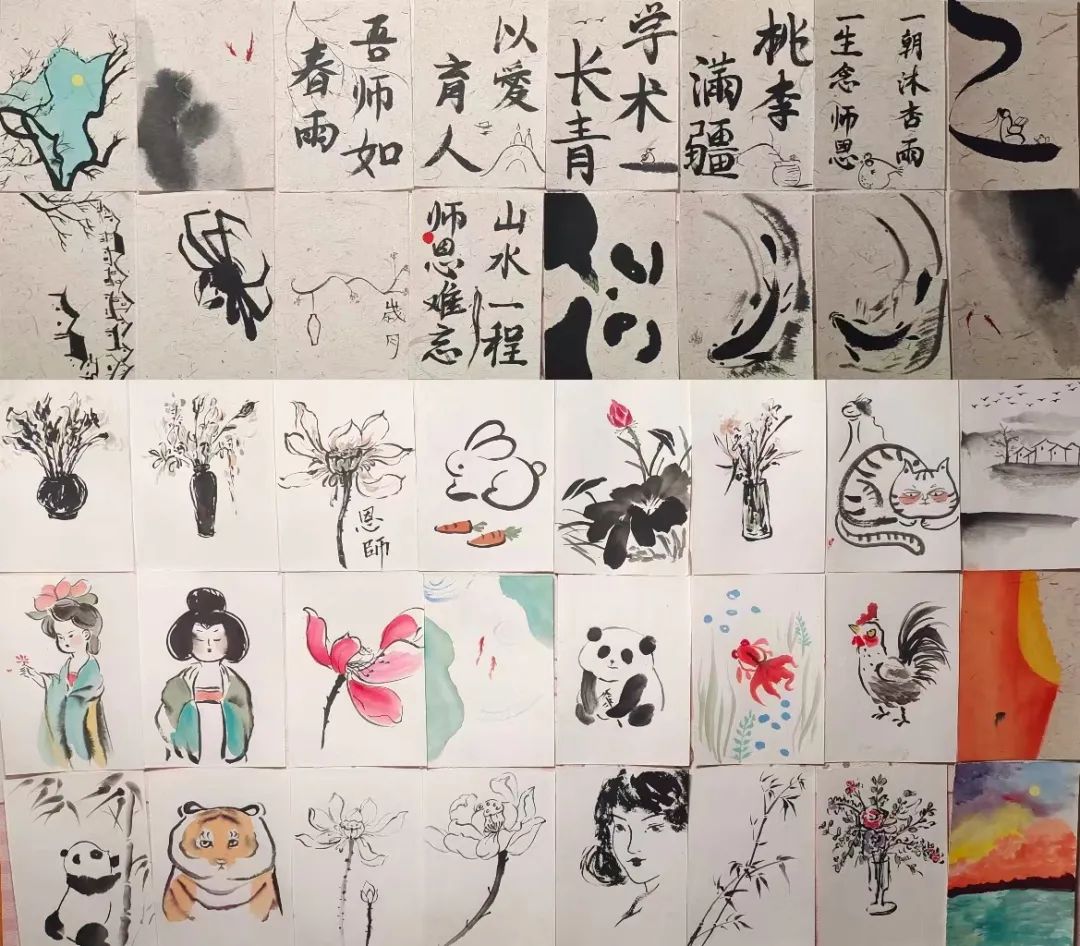 吾师如
春雨
以愛
育人
学术
长青
桃李
滿疆
一朝沐杏雨
一生念师恩
歲月
山水一程
师恩难忘
恩師